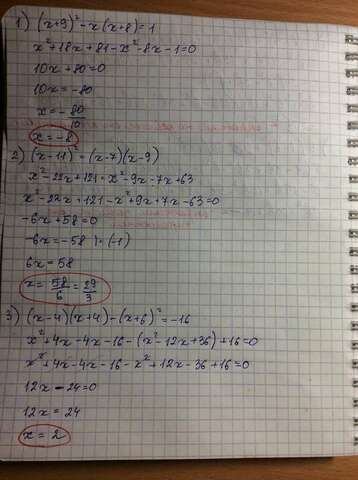 1) (x+9)² - x(x+8) = 1
x² + 18x + 81 - x² - 8x - 1 = 0
10x + 80 = 0
10x = -80
x = - 80/10
x = -8
2) (x-11)² = (x-7)(x-9)
x² - 22x + 121 = x² - 9x - 7x + 63
x² - 22x + 121 - x² + 9x + 7x - 63 = 0
-6x + 58 = 0
-6x = -58 | · (-1)
6x = 58
x = 58/6 = 29/3
3) (x-4)(x+4) - (x+6)² = -16
x² + 4x - 4x - 16 - (x² - 12x + 36) + 16 = 0
x² + 4x - 4x - 16 - x² + 12x - 36 + 16 = 0
12x - 24 = 0
12x = 24
x = 2